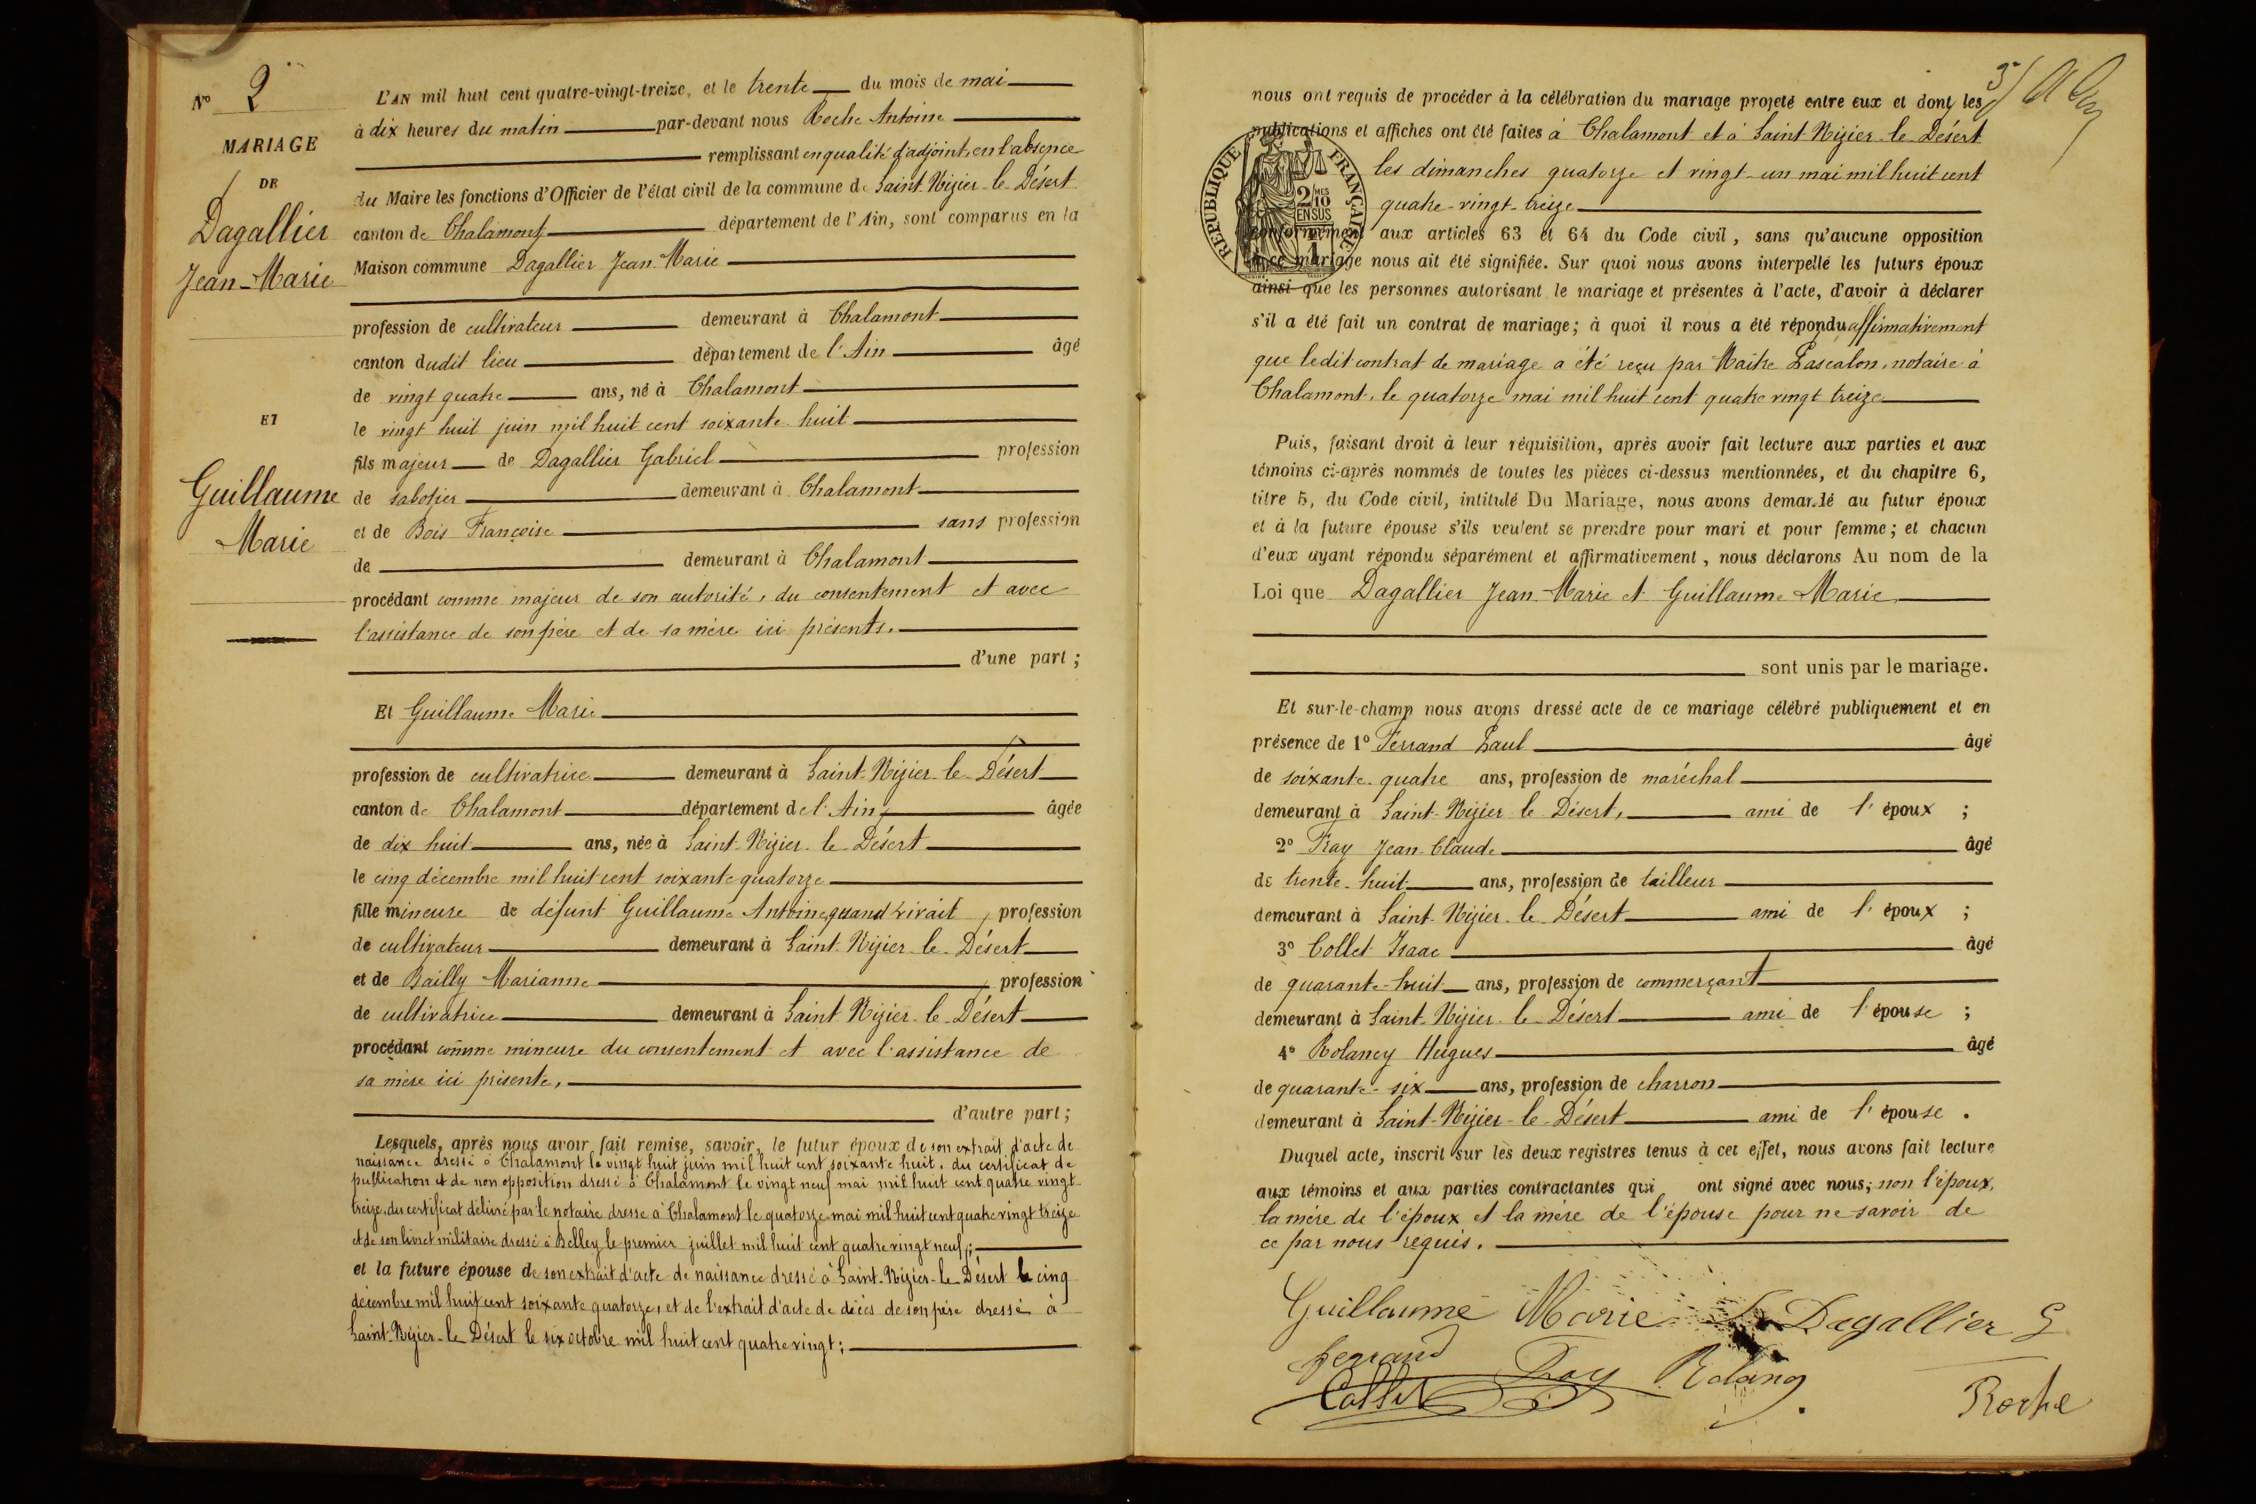 N° 2
MARIAGE
DE
Dagallier
Jean-Marie
ET
Guillaume
Marie
L'AN mil huit cent quatre-vingt-treize, et le trente du mois de mai
à dix heures du matin par-devant nous Roche Antoine
remplissant en qualité d'adjoint, en l'absence
du Maire les fonctions d'Officier de l'état civil de la commune de Saint-Nizier-le-Désert
canton de Chalamont département de l'Ain, sont comparus en la
Maison commune Dagallier Jean-Marie
profession de cultivateur demeurant à Chalamont
canton dudit lieu département de l'Ain âgé
de vingt quatre ans, né à Chalamont
le vingt huit juin mil huit cent soixante huit
fils majeur de Dagallier Gabriel profession
de sabotier demeurant à Chalamont
et de Bois Françoise sans profession
de demeurant à Chalamont
procédant comme majeur de son autorité, du consentement et avec
l'assistance de son père et de sa mère ici présents.
d'une part ;
Et Guillaume Marie
profession de cultivatrice demeurant à Saint-Nizier-le-Désert
canton de Chalamont département de l'Ain, âgée
de dix huit ans, née à Saint-Nizier-le-Désert
le cinq décembre mil huit cent soixante quatorze
fille mineure de défunt Guillaume Antoine, quand vivait, profession
de cultivateur demeurant à Saint-Nizier-le-Désert
et de Bailly Marianne, profession
de cultivatrice demeurant à Saint-Nizier-le-Désert
procédant comme mineure du consentement et avec l'assistance de
sa mère ici présente,
d'autre part ;
Lesquels, après nous avoir fait remise, savoir, le futur époux de son extrait d'acte de
naissance dressé à Chalamont le vingt huit juin mil huit cent soixante huit, du certificat de
publication et de non opposition dressé à Chalamont le vingt neuf mai mil huit cent quatre vingt
treize, du certificat délivré par le notaire dressé à Chalamont le quatorze mai mil huit cent quatre vingt treize
et de son livret militaire dressé à Belley le premier juillet mil huit cent quatre vingt neuf ;
et la future épouse de son extrait d'acte de naissance dressé à Saint-Nizier-le-Désert le cinq
décembre mil huit cent soixante quatorze, et de l'extrait d'acte de décès de son père dressé à
Saint-Nizier-le-Désert le six octobre mil huit cent quatre vingt ;
nous ont requis de procéder à la célébration du mariage projeté entre eux et dont les
publications et affiches ont été faites à Chalamont et à Saint Nizier-le-Désert
les dimanches quatorze et vingt-un mai mil huit cent
quatre-vingt-treize
conformément aux articles 63 et 64 du Code civil, sans qu'aucune opposition
à ce mariage nous ait été signifiée. Sur quoi nous avons interpellé les futurs époux
ainsi que les personnes autorisant le mariage et présentes à l'acte, d'avoir à déclarer
s'il a été fait un contrat de mariage ; à quoi il nous a été répondu affirmativement
que ledit contrat de mariage a été reçu par Maître Pascalon, notaire à
Chalamont, le quatorze mai mil huit cent quatre vingt treize
RÉPUBLIQUE FRANÇAISE
2/10 MES
EN SUS
Puis, faisant droit à leur réquisition, après avoir fait lecture aux parties et aux
témoins ci-après nommés de toutes les pièces ci-dessus mentionnées, et du chapitre 6,
titre 5, du Code civil, intitulé Du Mariage, nous avons demandé au futur époux
et à la future épouse s'ils veulent se prendre pour mari et pour femme ; et chacun
d'eux ayant répondu séparément et affirmativement, nous déclarons Au nom de la
Loi que Dagallier Jean-Marie et Guillaume Marie
sont unis par le mariage.
Et sur-le-champ nous avons dressé acte de ce mariage célébré publiquement et en
présence de 1° Ferrand Paul âgé
de soixante-quatre ans, profession de maréchal
demeurant à Saint-Nizier le Désert, ami de l'époux ;
2° Fray Jean-Claude âgé
de trente-huit ans, profession de tailleur
demeurant à Saint-Nizier-le-Désert ami de l'époux ;
3° Collet Isaac âgé
de quarante-huit ans, profession de commerçant
demeurant à Saint-Nizier-le-Désert ami de l'épouse ;
4° Rolancy Hugues âgé
de quarante-six ans, profession de charron
demeurant à Saint-Nizier-le-Désert ami de l'épouse.
Duquel acte, inscrit sur les deux registres tenus à cet effet, nous avons fait lecture
aux témoins et aux parties contractantes qui ont signé avec nous ; non l'époux,
la mère de l'époux et la mère de l'épouse pour ne savoir de
ce par nous requis.
Guillaume Marie Dagallier G
Ferrand Fray Rolancy
Collet Roche